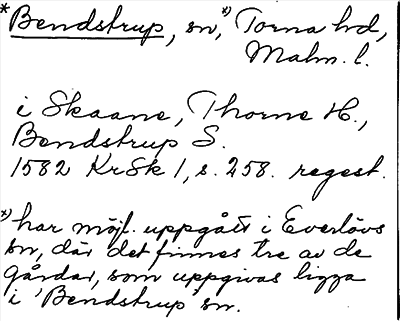 *Bendstrup, sn,*) Torna hd,
Malm. l.
i Skaane, Thorne H.,
Bendstrup S.
1582 KrSk 1, s. 258. regest.
*) har möjl. uppgått i Everlövs
sn, där det finnes tre av de
gårdar, som uppgivas ligga
i 'Bendstrup' sn.